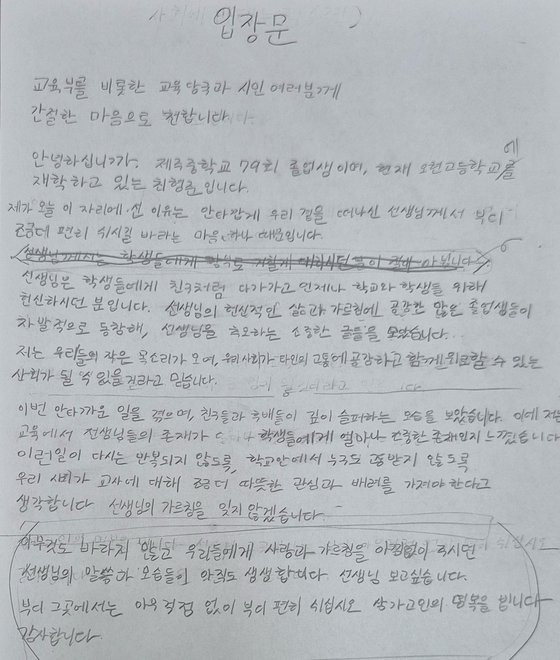 입장문
교육부를 비롯한 교육당국과 시민 여러분께
간절한 마음으로 전합니다.
안녕하십니까. 제주중학교 79회 졸업생이며, 현재 오현고등학교를에
재학하고 있는 입니다.
제가 오늘 이 자리에 선 이유는 안타깝게 우리 곁을 떠나신 선생님께서 부디
조금더 편히 쉬시길 바라는 마음 하나 때문입니다.
선생님께서는 학생들에게
선생님은 학생들에게 친구처럼 다가가고 언제나 학교와 학생들을 위해
헌신하시던 분입니다. 선생님의 헌신적인 삶과 가르침에 공감한 많은 졸업생들이
자발적으로 동참해, 선생님을 추모하는 소중한 글들을 모았습니다.
저는 우리들의 작은 목소리가 모여, 우리 사회가 타인의 고통에 공감하고 함께 위로할 수 있는
사회가 될 수 있을거라고 믿습니다.
이번 안타까운 일을 겪으며, 친구들과 후배들이 깊이 슬퍼하는 모습을 보았습니다. 이에 저는
교육에서 선생님들의 존재가 학생들에게 얼마나 소중한 존재인지 느꼈습니다
이런일이 다시는 반복되지 않도록, 학교안에서 누구도 고통받지 않도록
우리 사회가 교사에 대해 조금더 따뜻한 관심과 배려를 가져야 한다고
생각합니다 선생님의 가르침을 잊지 않겠습니다.
아무것도 바라지 않고 우리들에게 사랑과 가르침을 아낌없이 주시던
선생님의 말씀과 모습들이 아직도 생생합니다 선생님 보고싶습니다.
부디 그곳에서는 아무 걱정 없이 부디 편히 쉬십시오 삼가고인의 명복을 빕니다
감사합니다.